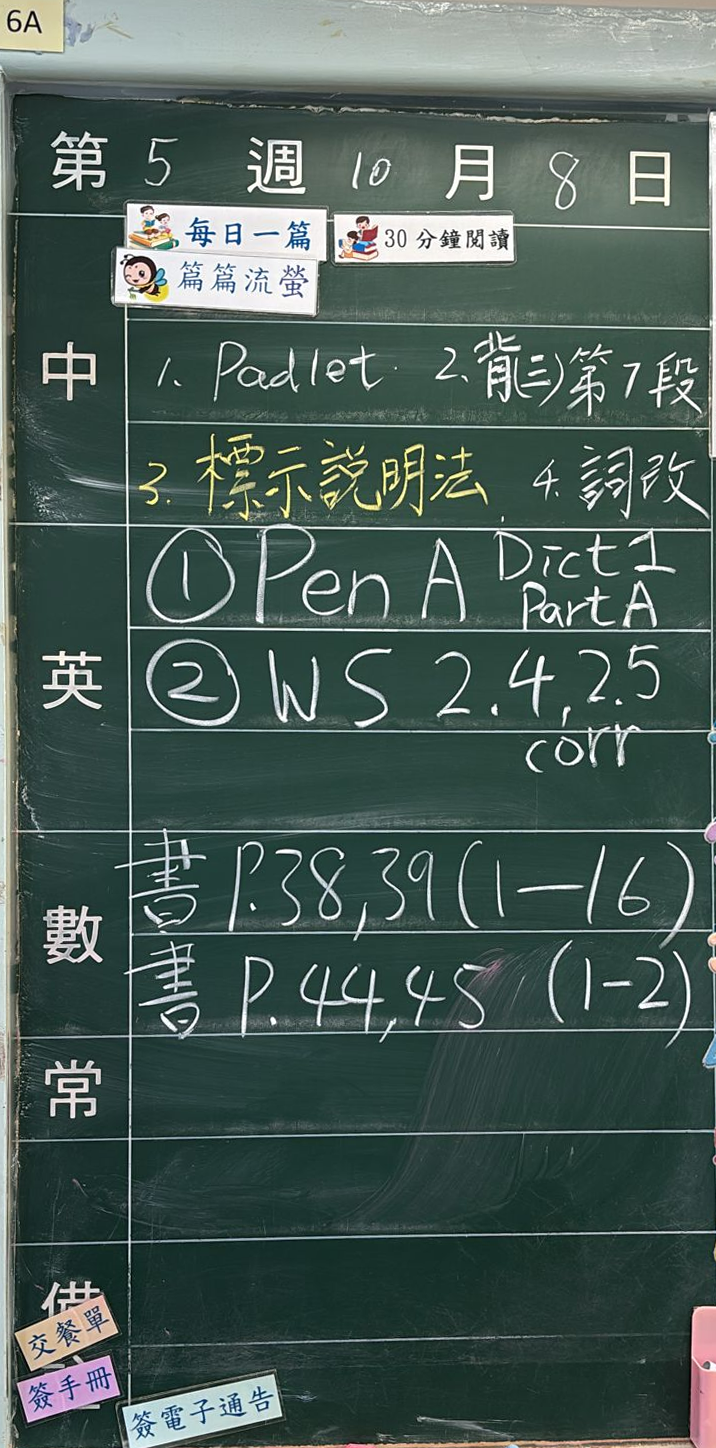 6A
第 5 週 10 月 8 日
每日一篇 30分鐘閱讀
篇篇流螢
中
1. Padlet 2. 背(三)第7段
3. 標示說明法 4. 詞改
英
① Pen A Dict 1
Part A
② WS 2.4, 2.5
corr
數
書 P.38,39 (1—16)
書 P.44,45 (1-2)
常
備
交餐單
簽手冊
簽電子通告